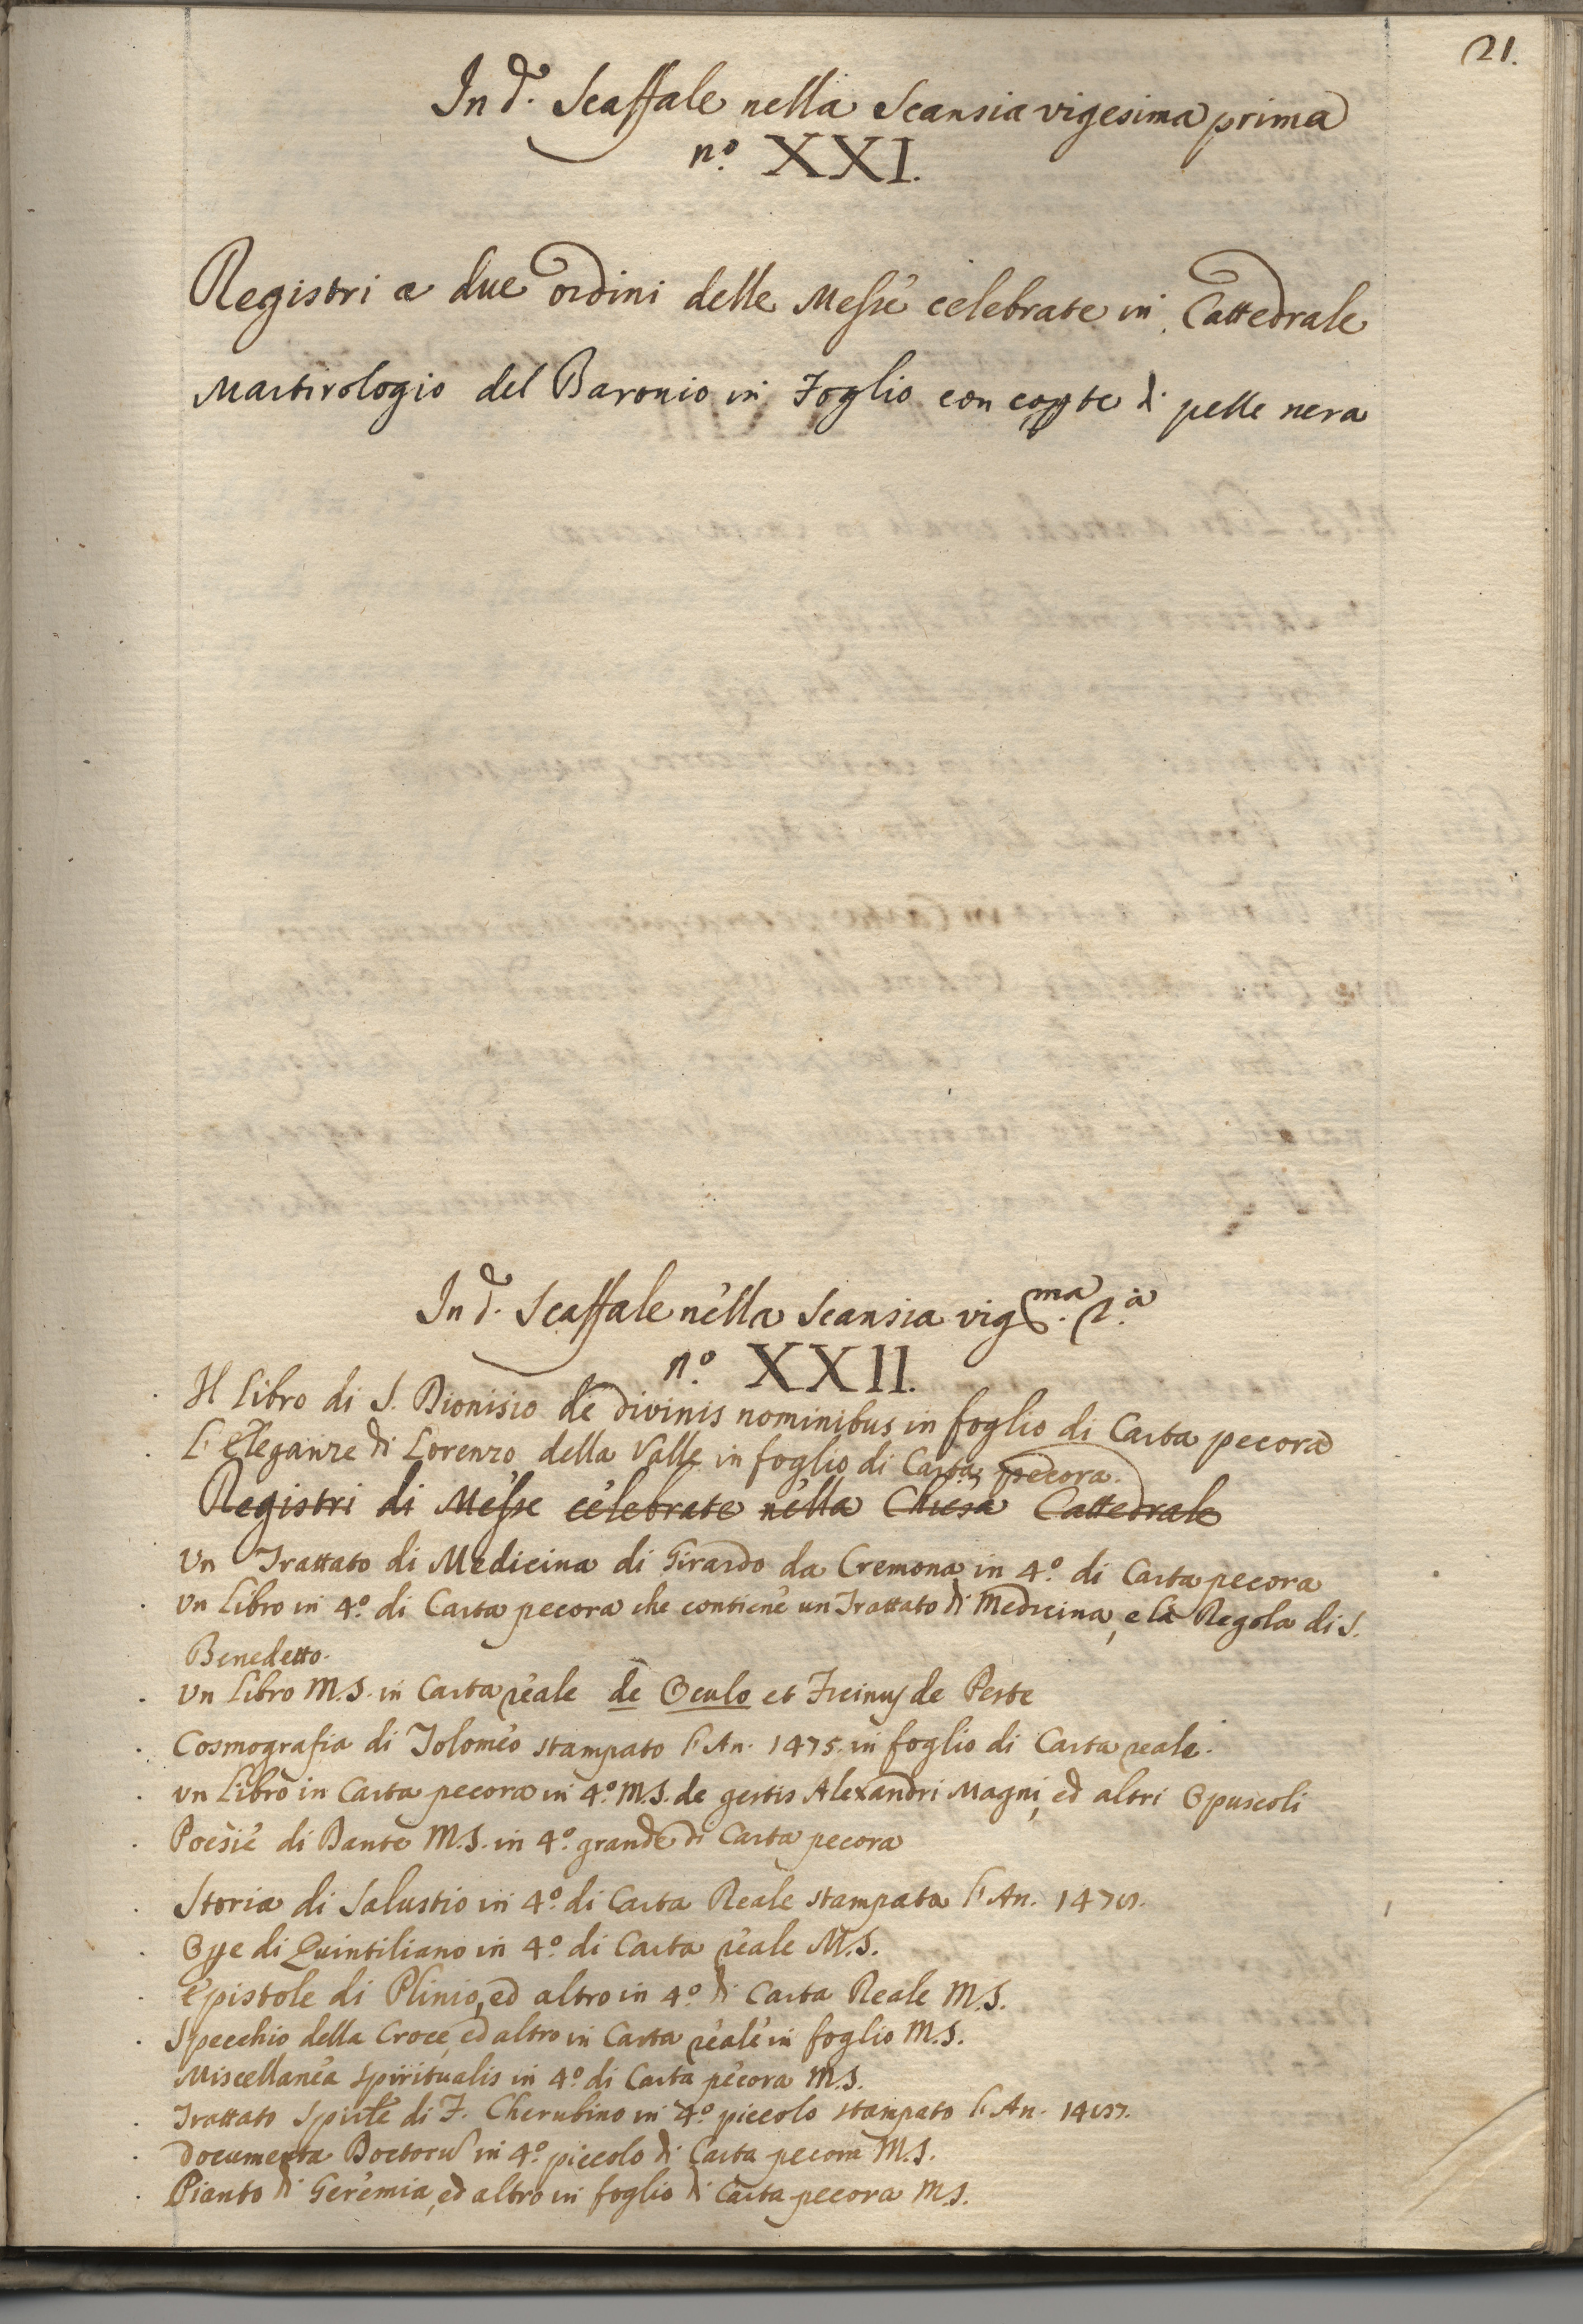 21.
In d.º Scaffale nella Scansia vigesima prima
n.º XXI.
Registri a due ordini delle Messe celebrate in Cattedrale
Martirologio del Baronio in Foglio con copte di pelle nera
In d.º Scaffale nella Scansia vig.ma 2.a
n.º XXII.
Il Libro di S. Dionisio de divinis nominibus in foglio di Carta pecora
L'eleganze di Lorenzo della Valle in foglio di Carta pecora.
Registri di Messe celebrate nella Chiesa Cattedrale
Un Trattato di Medicina di Girardo da Cremona in 4.º di Carta pecora
Un Libro in 4.º di Carta pecora che contiene un Trattato di Medicina, e la Regola di S.
Benedetto.
Un Libro M.S. in Carta reale de Oculo et Ficinus de Peste
Cosmografia di Tolomeo stampato l'An. 1475. in foglio di Carta reale.
Un Libro in Carta pecora in 4.º M.S. de gestis Alexandri Magni, ed altri Opuscoli
Poesie di Dante M.S. in 4.º grande di Carta pecora
Storia di Salustio in 4.º di Carta Reale stampata l'An.
Ope di Quintiliano in 4.º di Carta reale M.S.
Epistole di Plinio, ed altro in 4.º di Carta Reale M.S.
Specchio della Croce, ed altro in Carta reale in foglio M.S.
Miscellanea Spiritualis in 4.º di Carta pecora M.S.
Trattato Spirle di F. Cherubino in 4.º piccolo stampato l'An.
Documenta Doctoru in 4.º piccolo di Carta pecora M.S.
Pianto di Geremia, ed altro in foglio di Carta pecora M.S.